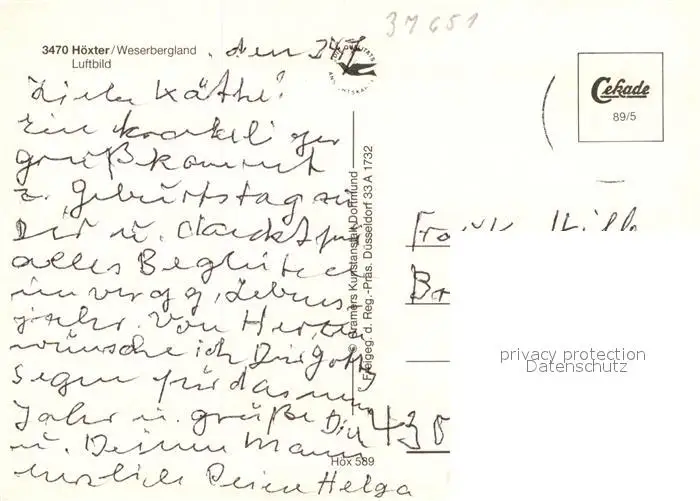 37651
3470 Höxter/Weserbergland
Luftbild
, den 24.7
Cekade
89/5
Liebe Käthe!
Ein krakeliger
Gruß kommt
z. Geburtstag zu
Dir u. dankt für
alles Beglückend
im verg g, Lebens
jahr. Von Herzen
wünsche ich Dir Gottes
Segen für das neue
Jahr u. grüße Dich
u. Deinen Mann
herzlich Deine Helga
© Cramers Kunstanstalt Dortmund
Freigeg. d. Reg.-Präs. Düsseldorf 33 A 1732
Höx 589
430
privacy protection
Datenschutz